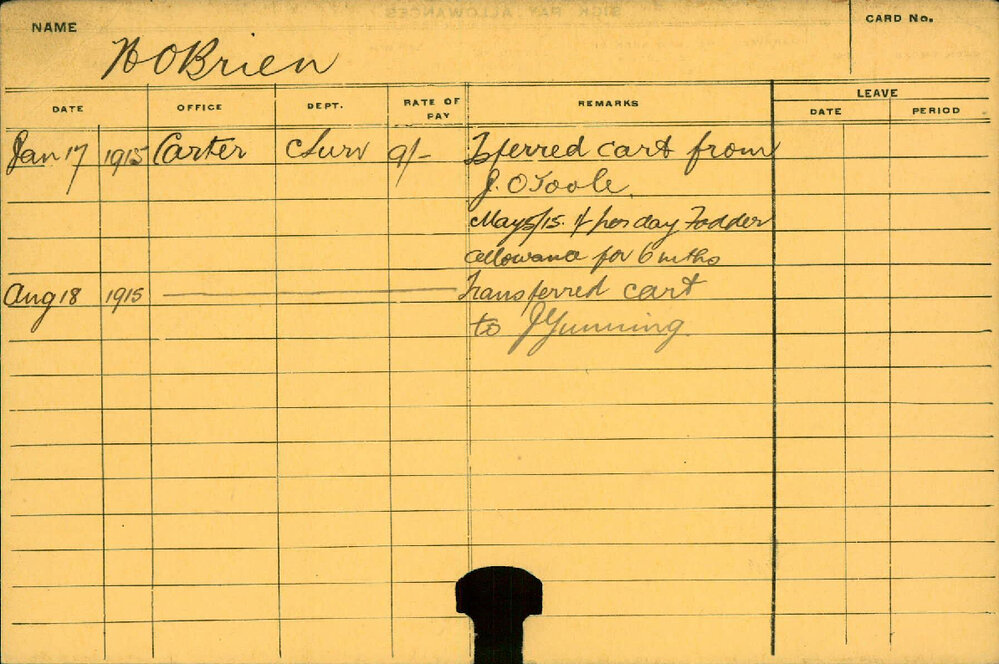 NAME
CARD No.
OBrien
DATE OFFICE DEPT. RATE OF PAY REMARKS LEAVE
DATE PERIOD
Jan 17 1915 Carter 9/- Tsferred cart from
J. OToole
May 5/15. 1/ per day Fodder
allowance for 6 mths
Aug 18 1915 Transferred cart
to J Gunning